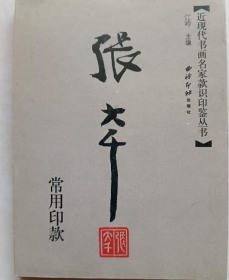 【近现代书画名家款识印鉴丛书】
江吟 主编
西泠印社
出版社
張大千
常用印款
張
大千